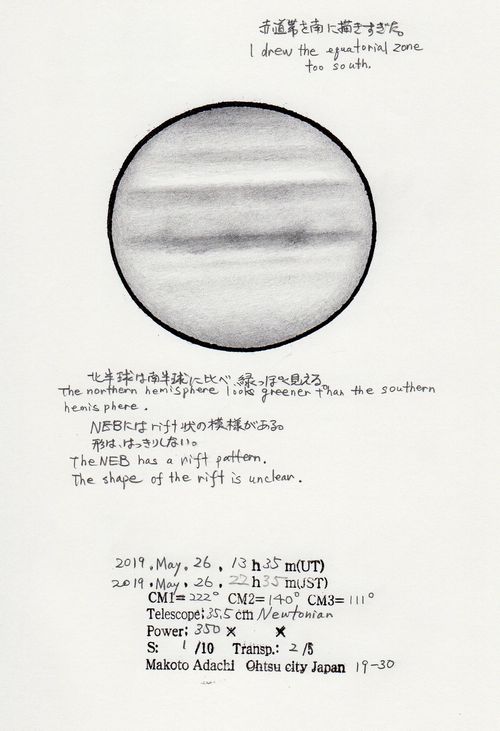 赤道帯を南に描きすぎた。
I drew the equatorial zone
too south.
北半球は南半球に比べ、緑っぽく見える。
The northern hemisphere looks greener than the southern
hemisphere.
NEBにはrift状の模様がある。
形は、はっきりしない。
The NEB has a rift pattern.
The shape of the rift is unclear.
2019. May. 26, 13h35m(UT)
2019. May. 26, 22h35m(JST)
CM1=222° CM2=140° CM3=111°
Telescope; 35.5cm Newtonian
Power; 350× ×
S: 1/10 Transp.: 2/5
Makoto Adachi Ohtsu city Japan 19-30